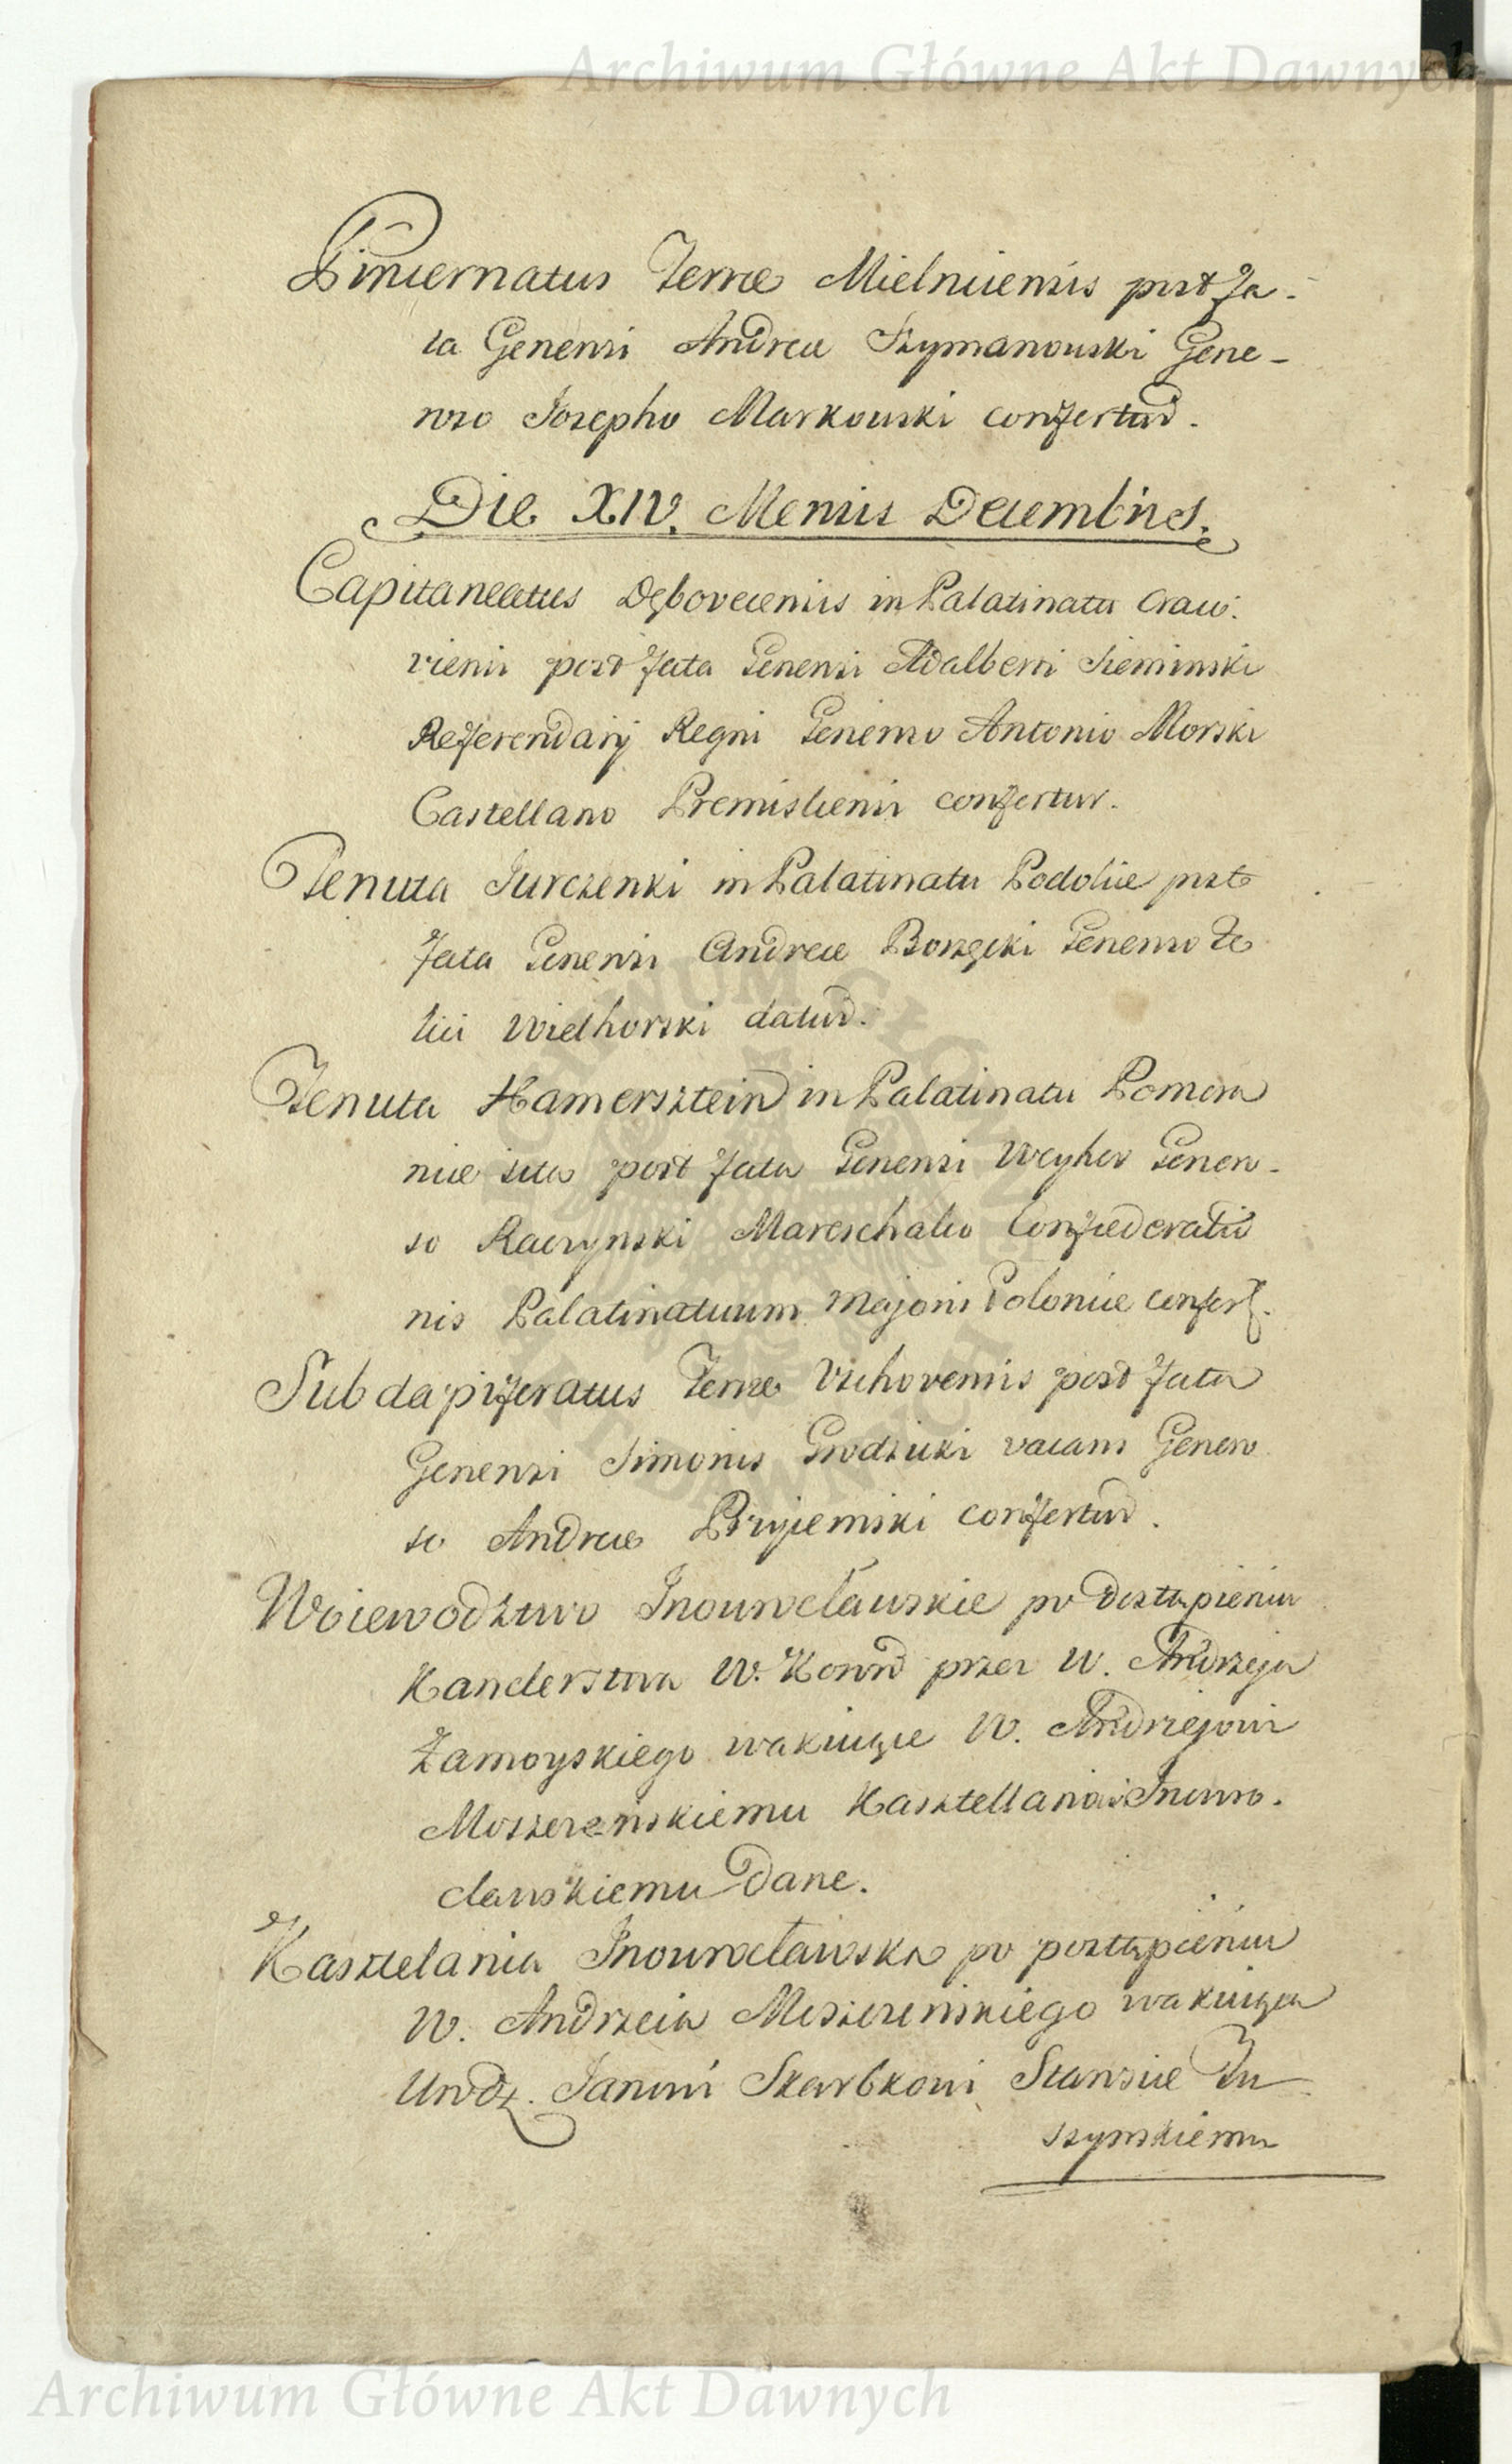 Archiwum Główne Akt Dawnych
Pincernatus Terræ Mielnicensis post Fa-
ta Generosi Andreæ Szymanowski Gene-
roso Josepho Markowski confertur.
Die XIV. Mensis Decembris.
Capitaneatus Dęboveciensis in Palatinatu Craco.
viensi post Fata Generosi Adalberti Sieminski
Referendarij Regni Generoso Antonio Morski
Castellano Premisliensi confertur.
Tenuta Jurczenki in Palatinatu Podoliæ post
Fata Generosi Andreæ Borzęcki Generoso Fe
lici Wielhorski datur.
Tenuta Hamersztein in Palatinatu Pomera
niæ sita post Fata Generosi Weyher Genero-
so Raczynski Mareschalco Confœderatio
nis Palatinatuum Majoris Poloniæ confert.
Subdapiferatus Terræ Vschovensis post Fata
Generosi Simonis Grodzicki vacans Genero
so Andreæ Przyiemski confertur.
Woiewodztwo Inowrocławskie po dostąpieniu
Kanclerstwa W. Koron przez W. Andrzeja
Zamoyskiego wakuiące W. Andrzejowi
Moszczeńskiemu Kasztellanowi Inowro.
cławskiemu Dane.
Kasztelania Inowrocławska po postąpieniu
W. Andrzeia Moszczeńskiego wakuiąca
Urodz. Janowi Skarbkowi Stanisie Ru
szynskiemu
Archiwum Główne Akt Dawnych